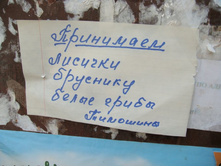 Принимаем
лисички
бруснику
белые грибы
Тимошины